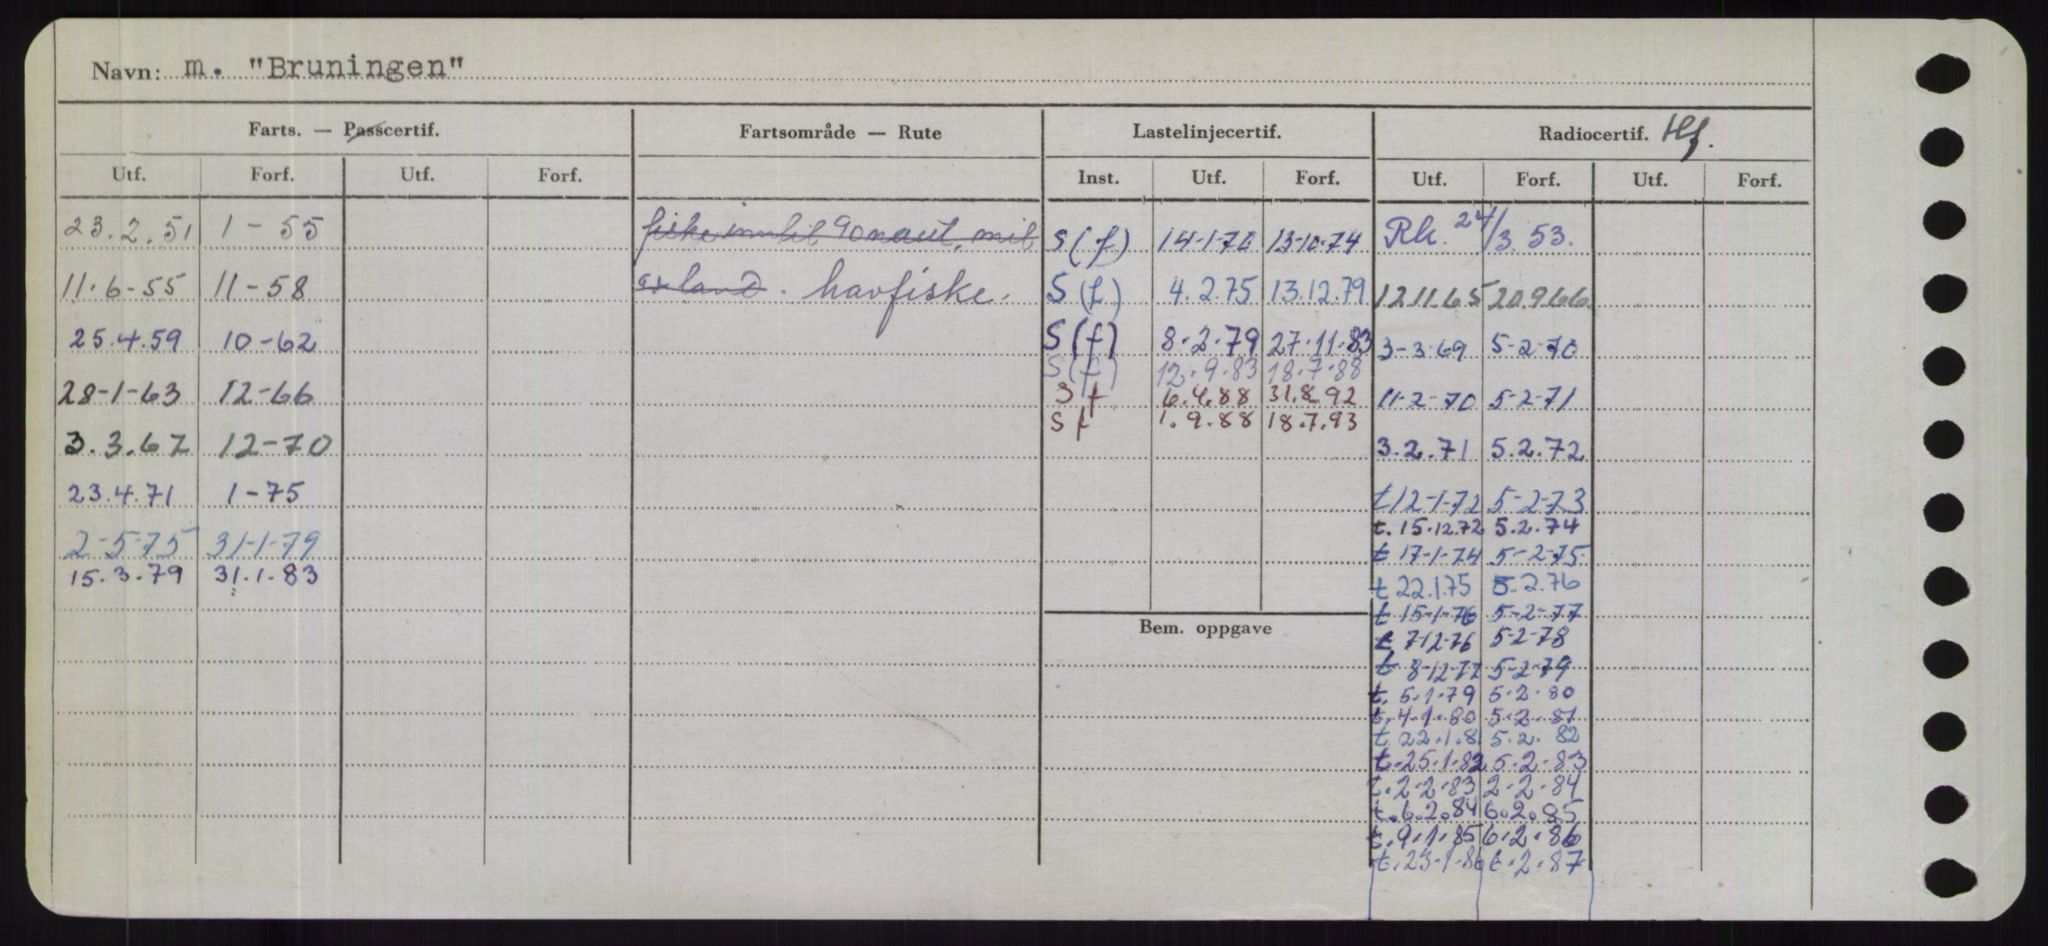 Navn: m. "Bruningen"
Farts. — Passcertif. Fartsområde — Rute Lastelinjecertif. Radiocertif. Hf.
Utf. Forf. Utf. Forf. Inst. Utf. Forf. Utf. Forf. Utf. Forf.
23.2.51 1-55 fiske inntil 90 naut. mil S(f) 14-1-70 13-10-74 Rk. 24/3.53.
11.6-55 11-58 land. havfiske. S(f) 4.2.75 13.12.79 12.11.65 20.9.66.
25.4.59 10-62 S(f) 8.2.79 27.11.83 3-3-69 5-2-70
S(f) 12.9.83 18.7.88
28-1-63 12-66 Sf 6.4.88 31.8.92 11-2-70 5-2-71
Sf 1.9.88 18.7.93
3.3.67 12-70 3.2.71 5.2.72
23.4.71 1-75 t 12-1-72 5-2-73
t. 15.12.72 5.2.74
2-5-75 31-1-79 t 17-1-74 5-2-75
15.3.79 31.1.83 t 22.1.75 5.2.76
t 15-1-76 5-2-77
Bem. oppgave t 7-12-76 5-2-78
t 8-12-77 5-2-79
t. 5.1.79 5.2.80
t. 4.1.80 5.2.81
t. 22.1.81 5.2.82
t. 25.1.82 5.2.83
t. 2.2.83 2.2.84
t. 6.2.84 6.2.85
t. 9.1.85 6.2.86
t. 23.1.86 6.2.87